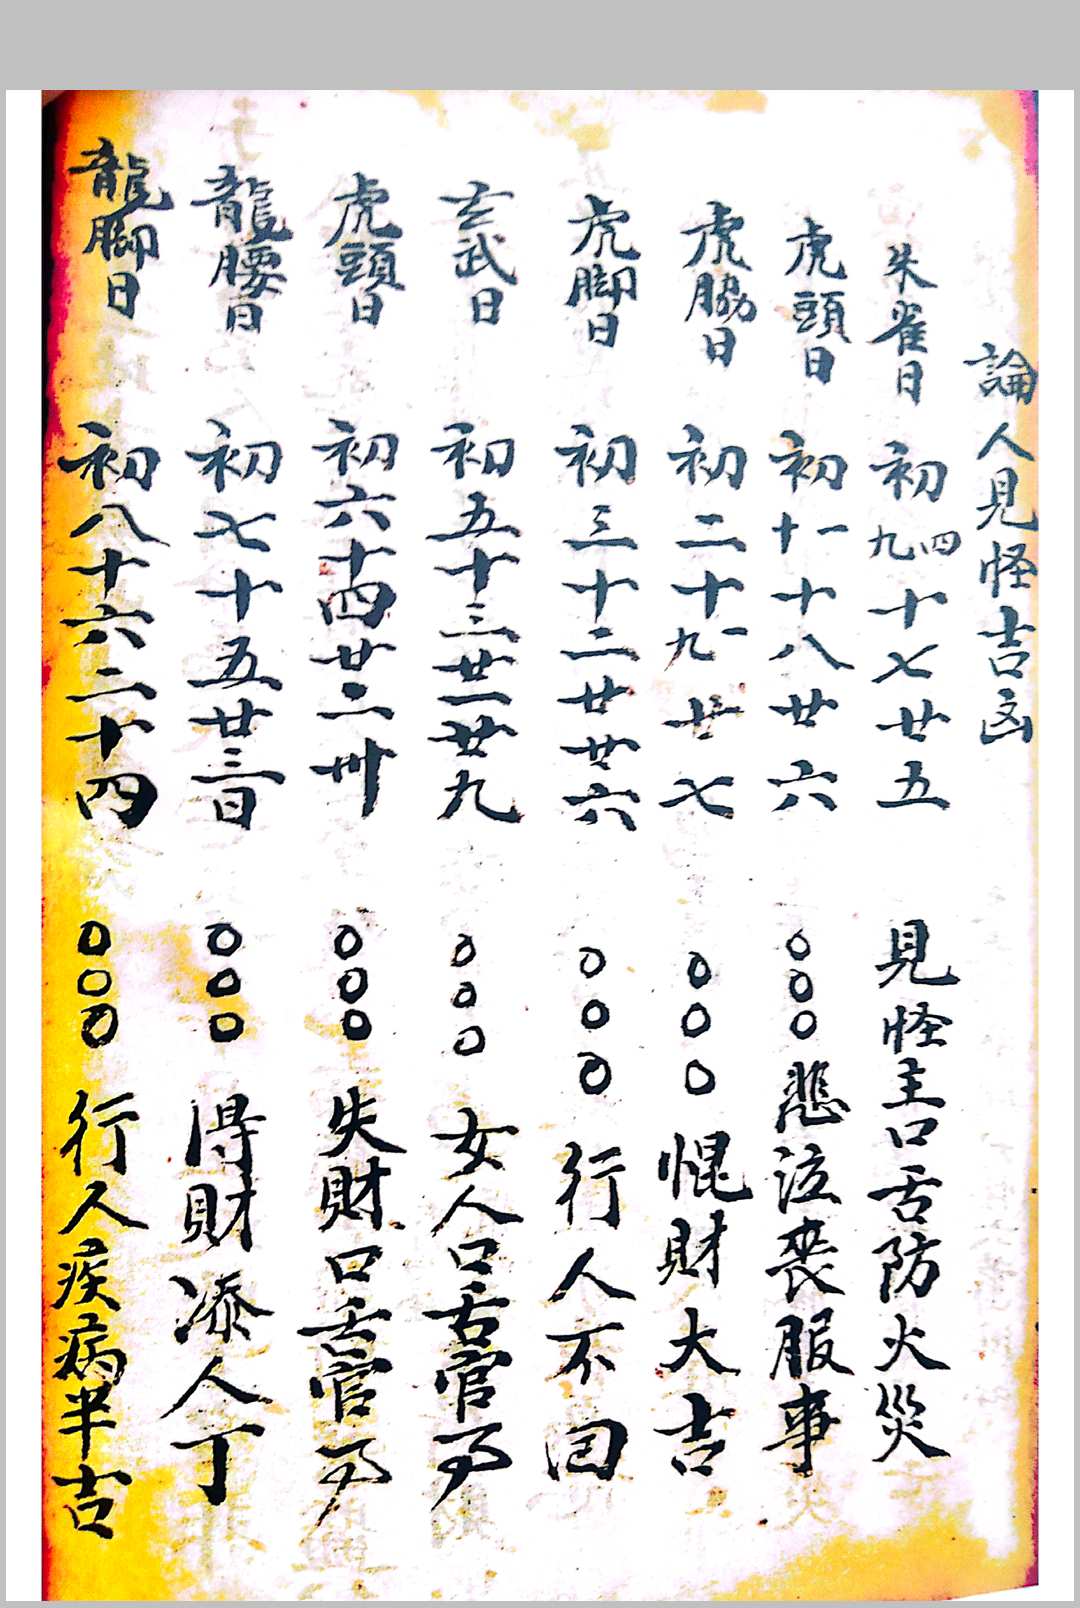 論人見怪吉凶
朱雀日 初四九十七廿五 見怪主口舌防火災
虎頭日 初十一十八廿六 〇〇〇悲泣喪服事
虎脇日 初二十一九廿七 〇〇〇惧財大吉
虎脚日 初三十二廿廿六 〇〇〇行人不回
玄武日 初五十三廿一廿九 〇〇〇女人口舌官
虎頭日 初六十四廿二卅 〇〇〇失財口舌官
龍腰日 初七十五廿三日 〇〇〇得財添人丁
龍脚日 初八十六二十四 〇〇〇行人疾病半吉